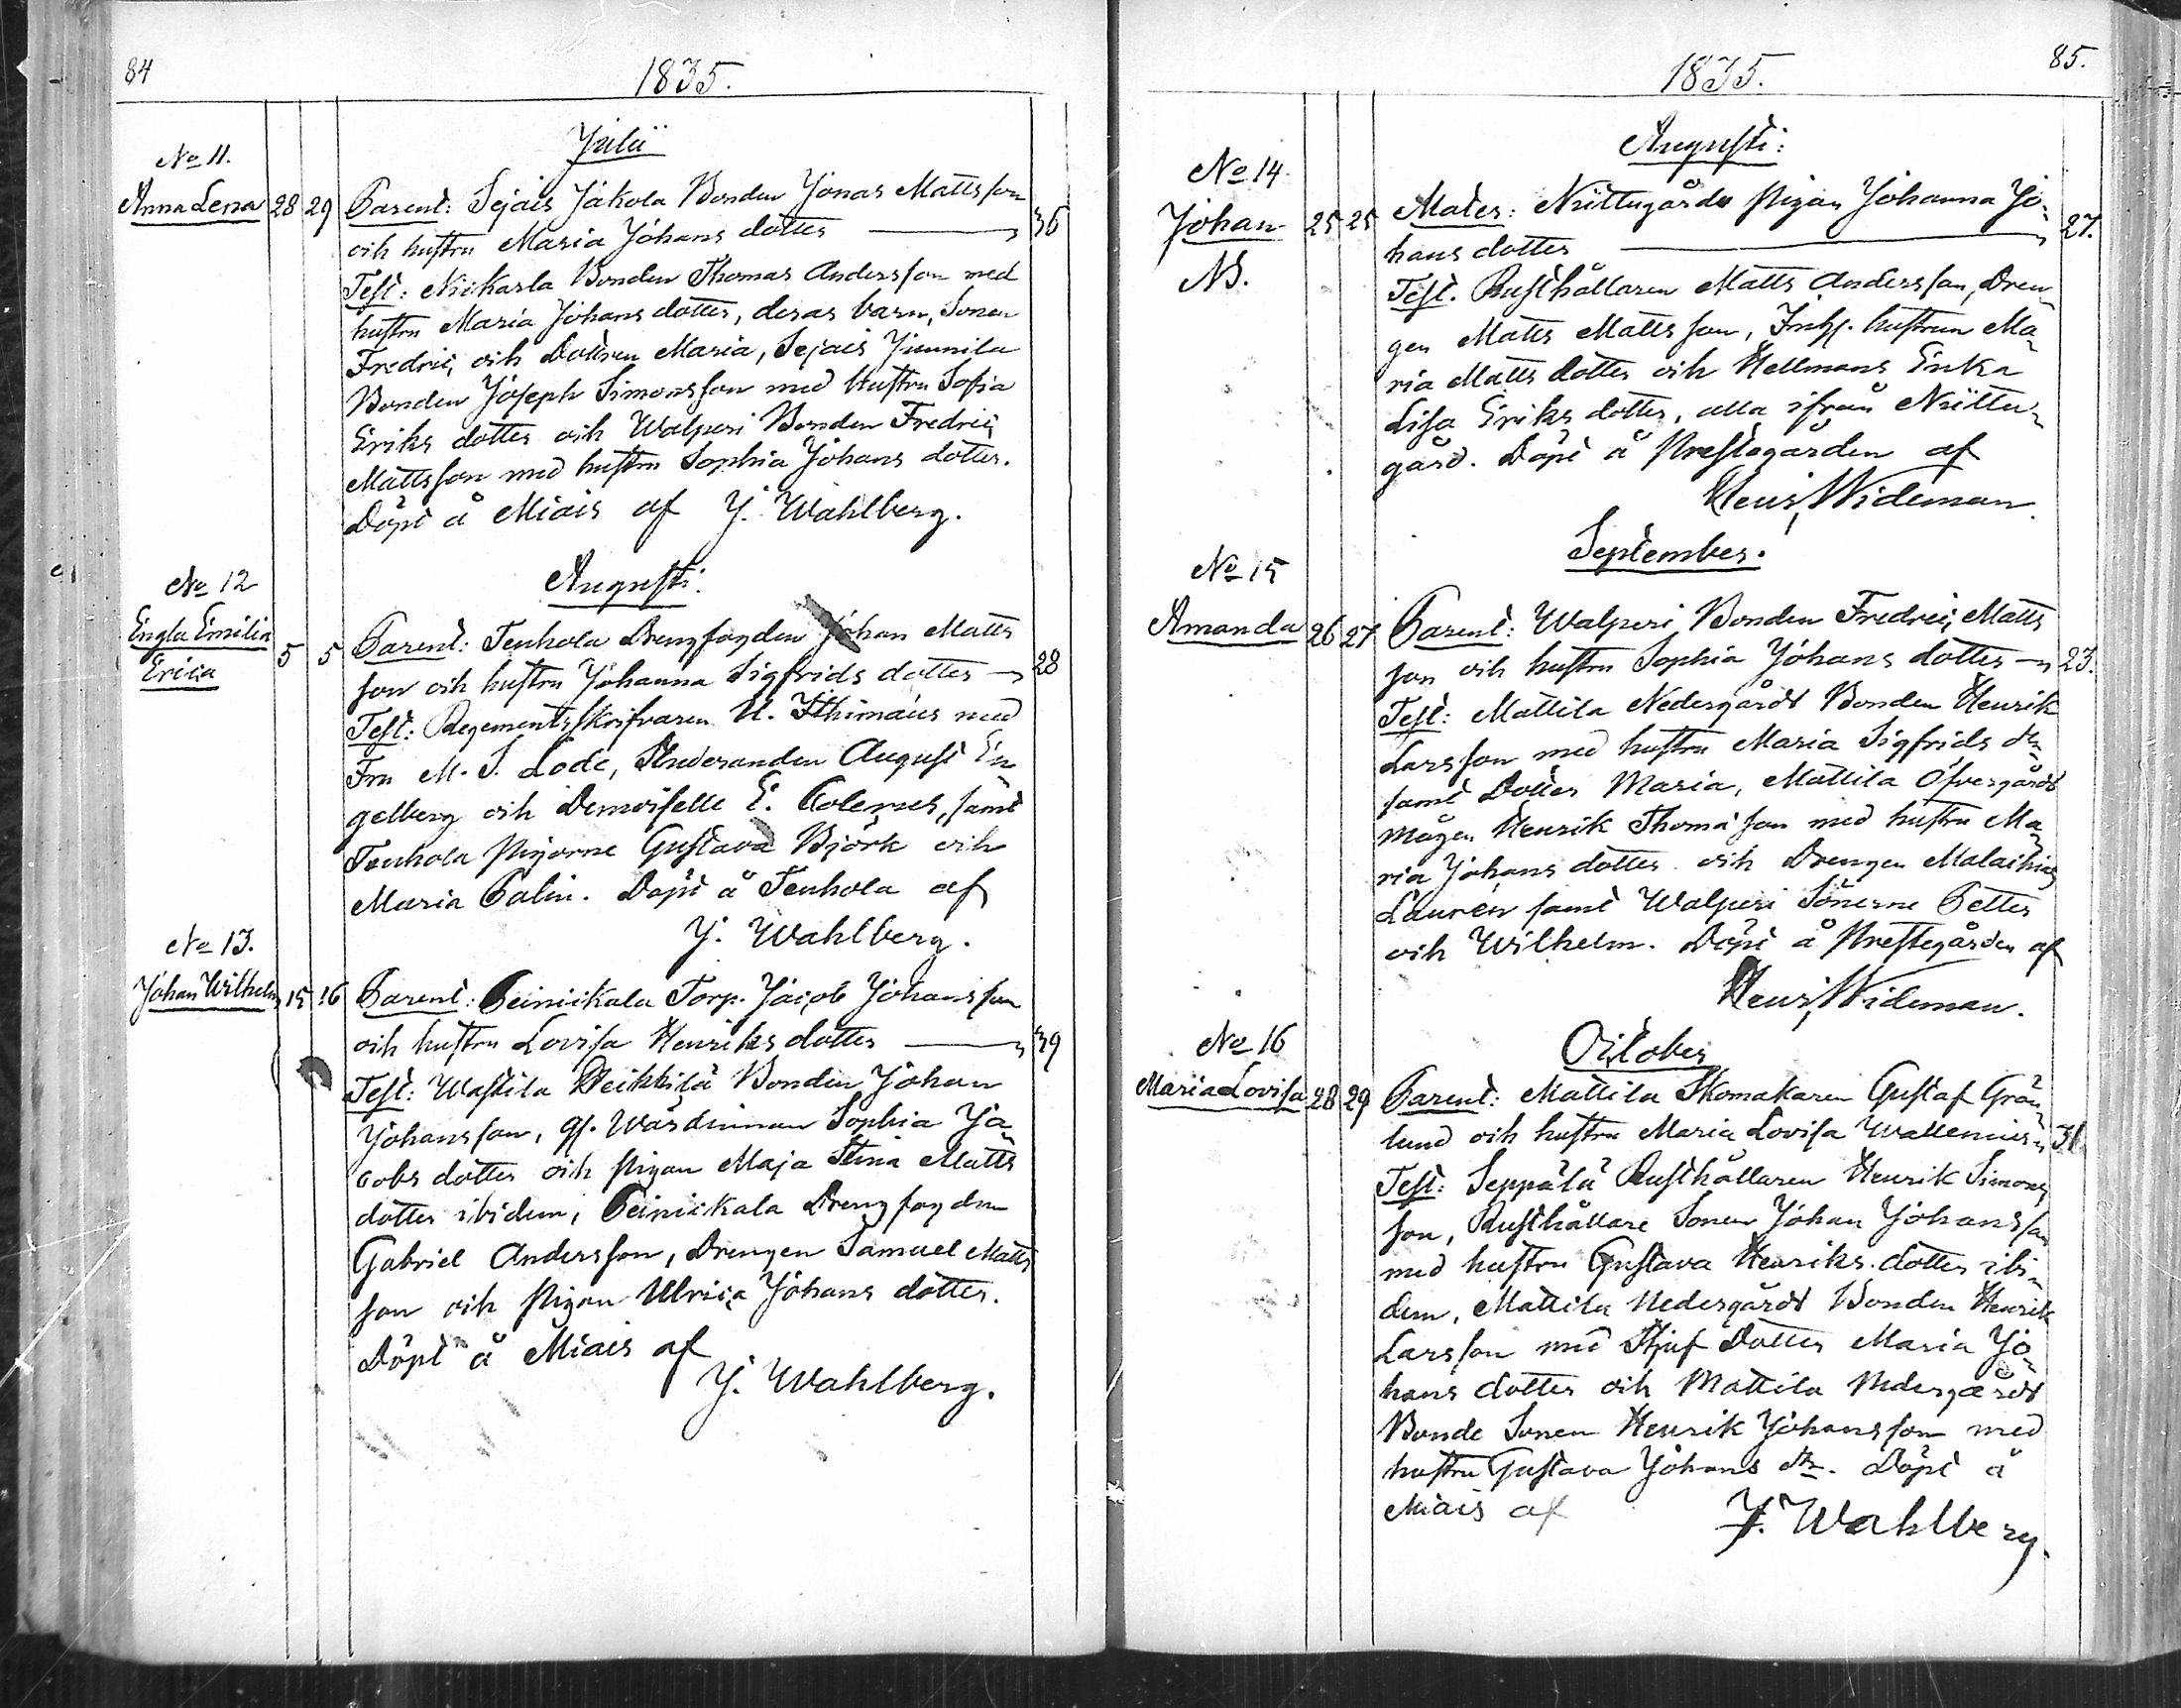 84
1835.
Julii
No 11.
Anna Lena 28 29 Parent: Sejais Jakola Bonden Jonas Mattsson
och hustru Maria Johans dotter 36
Test: Nickarla Bonden Thomas Andersson med
hustru Maria Johans dotter, deras barn, Sonen
Fredric, och Dottren Maria, Sejais Junnila
Bonden Joseph Simonsson med Hustru Sofia
Eriks dotter och Walperi Bonden Fredric
Mattsson med hustru Sophia Johans dotter.
Döpt å Miais af J. Wahlberg.
Augusti.
No 12
Engla Emilia
Erica 5 5 Parent: Tenhola Drengfogden Johan Matts
son och hustru Johanna Sigfrids dotter 28
Test: Regementsskrifvaren U. Ithimæus med
Fru M. S. Lode, Studeranden August En
gelberg och Demoiselle E. Polemes, samt
Tenhola Pigorne Gustava Björk och
Maria Palin. Döpt å Tenhola af
J. Wahlberg.
No 13.
Johan Wilhelm 15 16 Parent: Peinickala Torp. Jacob Johansson
och hustru Lovisa Henriks dotter 39
Test: Wastila Heikkilä Bonden Johan
Johansson, gf. Wärdinnan Sophia Ja
cobs dotter och Pigan Maja Stina Matts
dotter ibidem, Peinickala Drengfogden
Gabriel Andersson, Drengen Samuel Matts
son och Pigan Ulrica Johans dotter.
Döpt å Miais af
J. Wahlberg.
85.
1835.
Augusti:
No 14.
Johan 25 25 Mater: Niittugårds Pigan Johanna Jo-
hans dotter 27.
N.
Test. Rusthållaren Matts Andersson, Dren
gen Matts Mattsson, Inhys. hustrun Ma
ria Matts dotter och Hellmans Enka
Lisa Eriks dotter, alla ifrån Niittu
gård. Döpt å Prestegården af
Henr. Wideman.
September.
No 15
Amanda 26 27 Parent: Walperi Bonden Fredric Matts
son och hustru Sophia Johans dotter 23.
Test: Mattila Nedergårds Bonden Henrik
Larsson med hustru Maria Sigfrids dr
samt Dotter Maria, Mattila Öfvergårds
Mågen Henrik Thomasson med hustru Ma
ria Johans dotter och Drengen Malachias
Lauren samt Walperi Sönerne Petter
och Wilhelm. Döpt å Prestegården af
Henr. Wideman.
October
No 16
Maria Lovisa 28 29 Parent: Mattila Skomakaren Gustaf Grön
lund och hustru Maria Lovisa Wallenius 31
Test: Seppälä Rusthållaren Henrik Simons
son, Rusthållare Sonen Johan Johansson
med hustru Gustava Henriks dotter ibi
dem, Mattila Nedergårds Bonden Henrik
Larsson med Stjuf Dotter Maria Jo
hans dotter och Mattila Nedergårds
Bonde Sonen Henrik Johansson med
hustru Gustava Johans dr. Döpt å
Miais af J. Wahlberg.